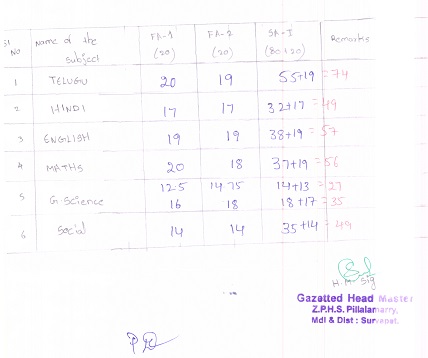 Sl No Name of the subject FA-1 (20) FA-2 (20) SA-I (80+20) Remarks
1 TELUGU 20 19 55+19 =74
2 HINDI 17 17 32+17 =49
3 ENGLISH 19 19 38+19 =57
4 MATHS 20 18 37+19 =56
5 G.Science 12.5 14.75 14+13 =27
16 18 18+17 =35
6 Social 14 14 35+14 =49
H.M. Sig
Gazetted Head Master
Z.P.H.S. Pillalamarry,
Mdl & Dist : Suryapet.